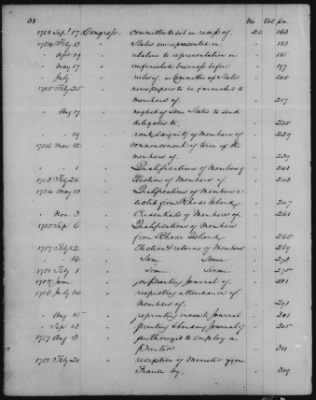 38 No Vol. pa.
1788 Sept 17 Congress. committee to sit in recess of. 20 163
1784 Feby 13 States unrepresented in 183
" Apr 19 relative to representation in 185
" May 17 unfinished business before 197
" July relief of, in Committee of States 205
1785 Feby 25 newspapers to be furnished to
members of. 217
" Aug 17 neglect of some States to send
delegates to. 225
" " 19 rank & dignity of Members of 229
1786 Mar 12 commencement of term of the
members of. 239
" " Qualifications of Members of 241
1783 Feby 26 Election of Members of 243
1784 May 13 Qualifications of Members e-
lected from Rhode Island, 247
" Nov 3 Credentials of Members of 261
1785 Sept 6 Qualifications of Members
from Rhode Island. 265
1787 Feby 12 Election & returns of Members 269
" " 16 Same Same 273
1781 Feby 1 Same Same 275
on printing Journal of. 281
July respecting attendance of
Members of. 293
" Aug 15 respecting index to Journal 301
" Sept 13 printing & binding Journal of 305
1787 Aug 13 authorized to employ a
Printer 311
1781 Feby 20 reception of Minister from
France by. 319